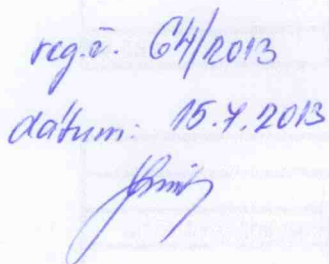 reg.č. 64/2013
dátum: 15.7.2013